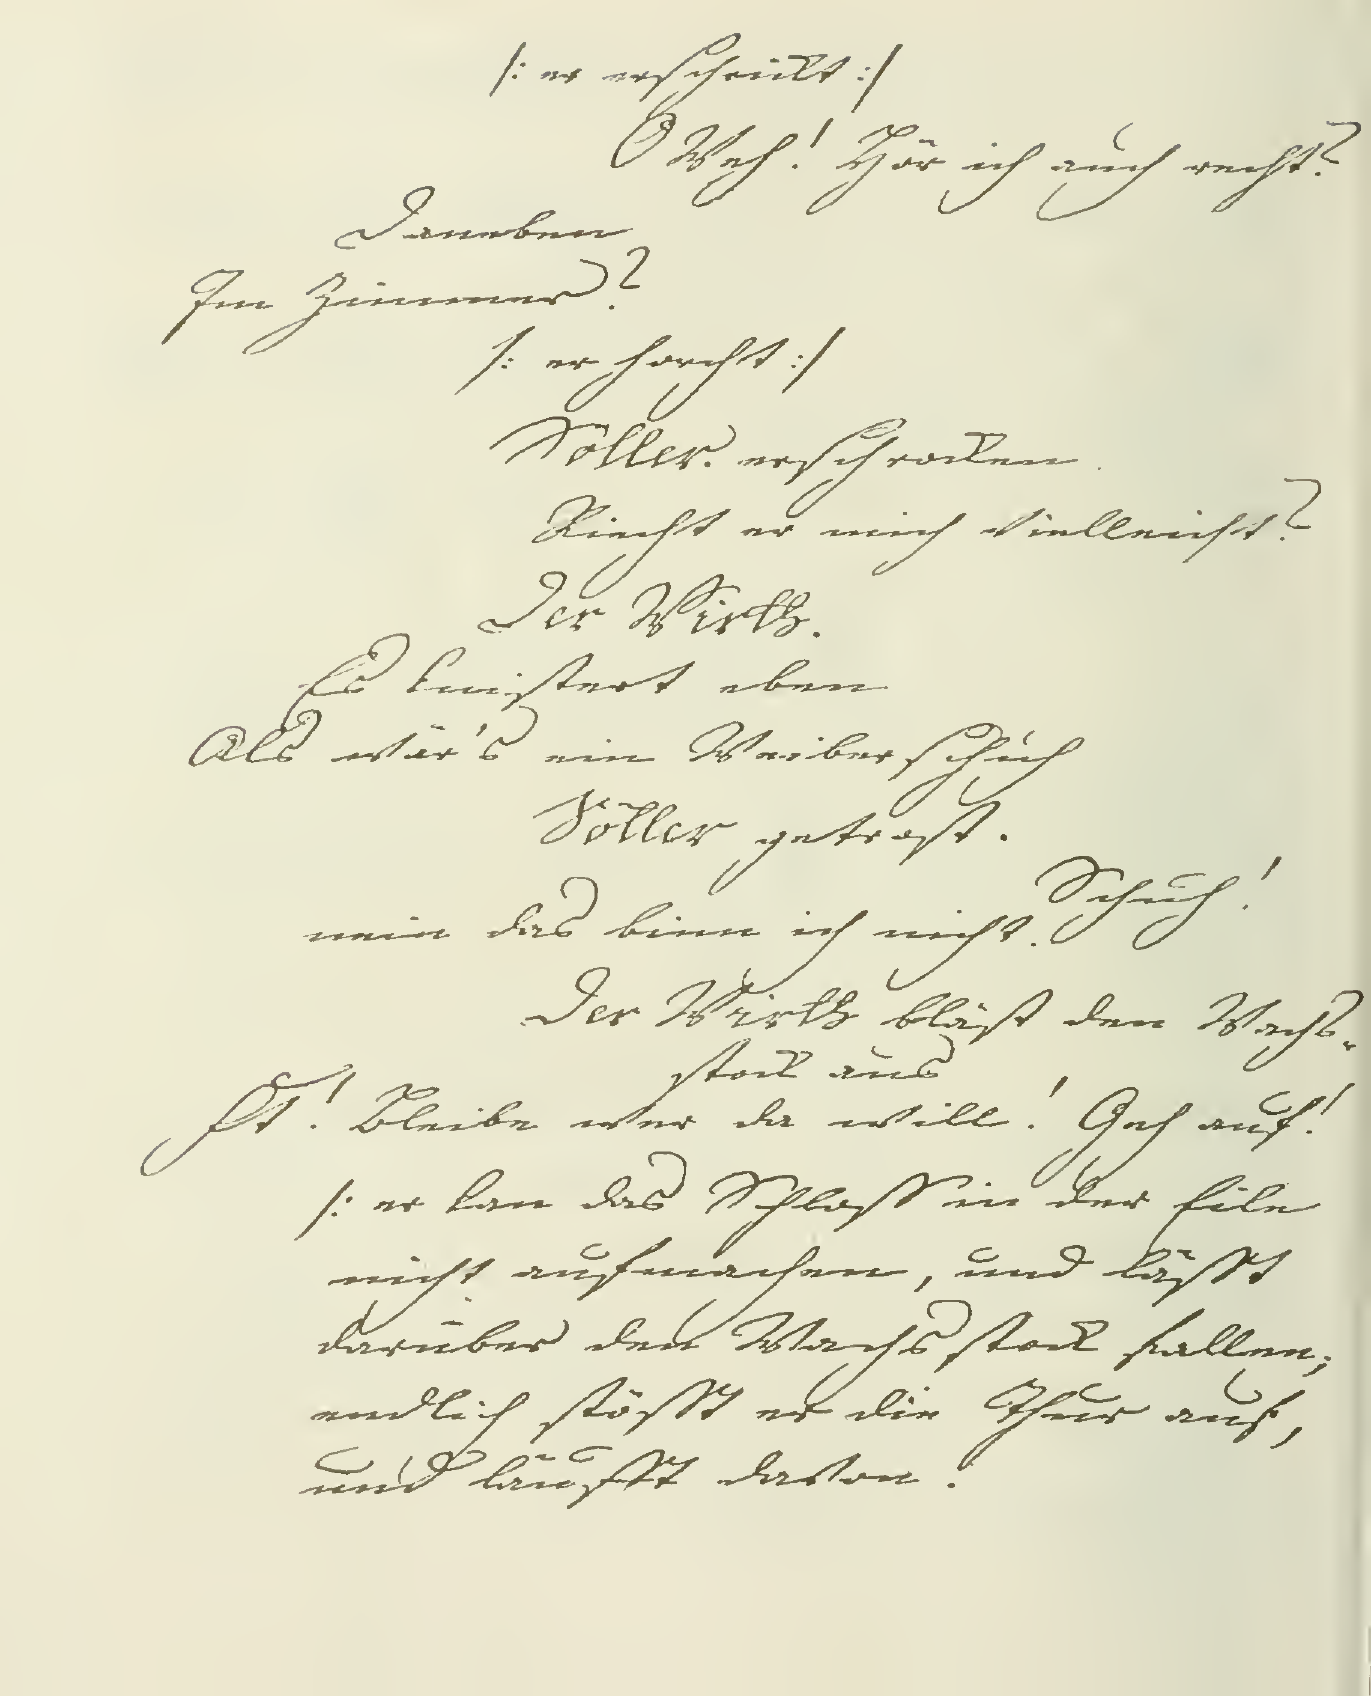 /: er erschrickt :/
O Weh! Hör ich auch recht?
Daneben
Im Zimmer?
/: er horcht :/
Söller. erschrocken
Riecht er mich vielleicht?
Der Wirth.
Es knistert eben
Als wär's ein Weiberschuh
Söller getrost.
Schuh!
nein das binn ich nicht.
Der Wirth bläst den Wachs-
stock aus
St! Bleibe wer da will! Geh auf!
/: er kan das Schloss in der Eile
nicht aufmachen, und lässt
darüber den Wachsstock fallen;
endlich stösst er die Thür auf,
und läufft davon.